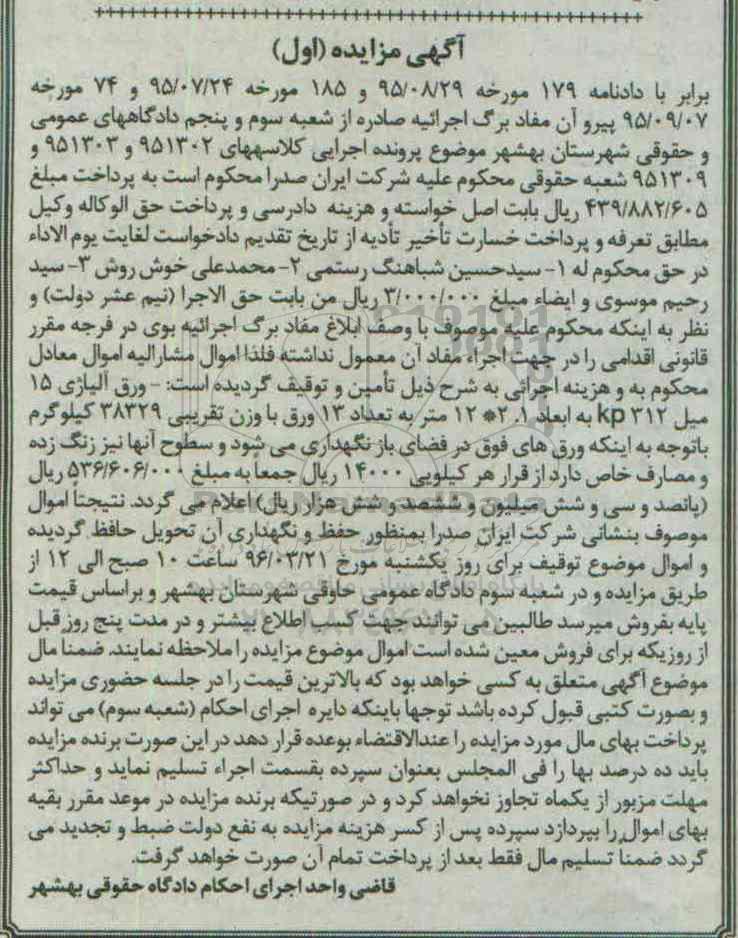 آگهی مزایده (اول)
برابر با دادنامه ۱۷۹ مورخه ۹۵/۰۸/۲۹ و ۱۸۵ مورخه ۹۵/۰۷/۲۴ و ۷۴ مورخه
۹۵/۰۹/۰۷ پیرو آن مفاد برگ اجرائیه صادره از شعبه سوم و پنجم دادگاههای عمومی
و حقوقی شهرستان بهشهر موضوع پرونده اجرایی کلاسههای ۹۵۱۳۰۲ و ۹۵۱۳۰۳ و
۹۵۱۳۰۹ شعبه حقوقی محکوم علیه شرکت ایران صدرا محکوم است به پرداخت مبلغ
۴۳۹/۸۸۲/۶۰۵ ریال بابت اصل خواسته و هزینه دادرسی و پرداخت حق الوکاله وکیل
مطابق تعرفه و پرداخت خسارت تأخیر تأدیه از تاریخ تقدیم دادخواست لغایت یوم الاداء
در حق محکوم له ۱- سیدحسین شباهنگ رستمی ۲- محمدعلی خوش روش ۳- سید
رحیم موسوی و ایضاء مبلغ ۳/۰۰۰/۰۰۰ ریال من بابت حق الاجرا (نیم عشر دولت) و
نظر به اینکه محکوم علیه موصوف با وصف ابلاغ مفاد برگ اجرائیه بوی در فرجه مقرر
قانونی اقدامی را در جهت اجراء مفاد آن معمول نداشته فلذا اموال مشارالیه اموال معادل
محکوم به و هزینه اجرائی به شرح ذیل تأمین و توقیف گردیده است: - ورق آلیاژی ۱۵
میل kp ۳۱۲ به ابعاد ۲.۱* ۱۲ متر به تعداد ۱۳ ورق با وزن تقریبی ۳۸۳۲۹ کیلوگرم
باتوجه به اینکه ورق های فوق در فضای باز نگهداری می شود و سطوح آنها نیز زنگ زده
و مصارف خاص دارد از قرار هر کیلویی ۱۴۰۰۰ ریال جمعاً به مبلغ ۵۳۶/۶۰۶/۰۰۰ ریال
(پانصد و سی و شش میلیون و ششصد و شش هزار ریال) اعلام می گردد. نتیجتاً اموال
موصوف بنشانی شرکت ایران صدرا بمنظور حفظ و نگهداری آن تحویل حافظ گردیده
و اموال موضوع توقیف برای روز یکشنبه مورخ ۹۶/۰۳/۲۱ ساعت ۱۰ صبح الی ۱۲ از
طریق مزایده و در شعبه سوم دادگاه عمومی حقوقی شهرستان بهشهر و براساس قیمت
پایه بفروش میرسد طالبین می توانند جهت کسب اطلاع بیشتر و در مدت پنج روز قبل
از روزیکه برای فروش معین شده است اموال موضوع مزایده را ملاحظه نمایند. ضمناً مال
موضوع آگهی متعلق به کسی خواهد بود که بالاترین قیمت را در جلسه حضوری مزایده
و بصورت کتبی قبول کرده باشد توجهاً باینکه دایره اجرای احکام (شعبه سوم) می تواند
پرداخت بهای مال مورد مزایده را عندالاقتضاء بوعده قرار دهد در این صورت برنده مزایده
باید ده درصد بها را فی المجلس بعنوان سپرده بقسمت اجراء تسلیم نماید و حداکثر
مهلت مزبور از یکماه تجاوز نخواهد کرد و در صورتیکه برنده مزایده در موعد مقرر بقیه
بهای اموال را بپردازد سپرده پس از کسر هزینه مزایده به نفع دولت ضبط و تجدید می
گردد ضمناً تسلیم مال فقط بعد از پرداخت تمام آن صورت خواهد گرفت.
قاضی واحد اجرای احکام دادگاه حقوقی بهشهر